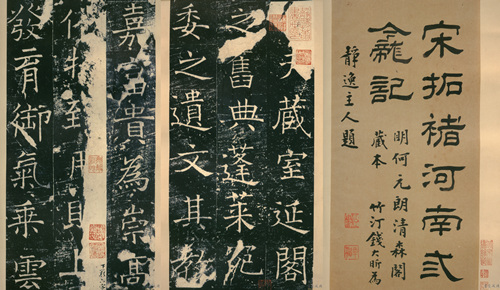 宋拓褚河南弍
龕記
明何元朗清森閣
藏本 竹汀錢大昕為
靜逸主人題
夫藏室延閣
之舊典蓬萊宛
委之遺文其教
嘉富貴為崇高
物致用則上
發育御氣乘雲